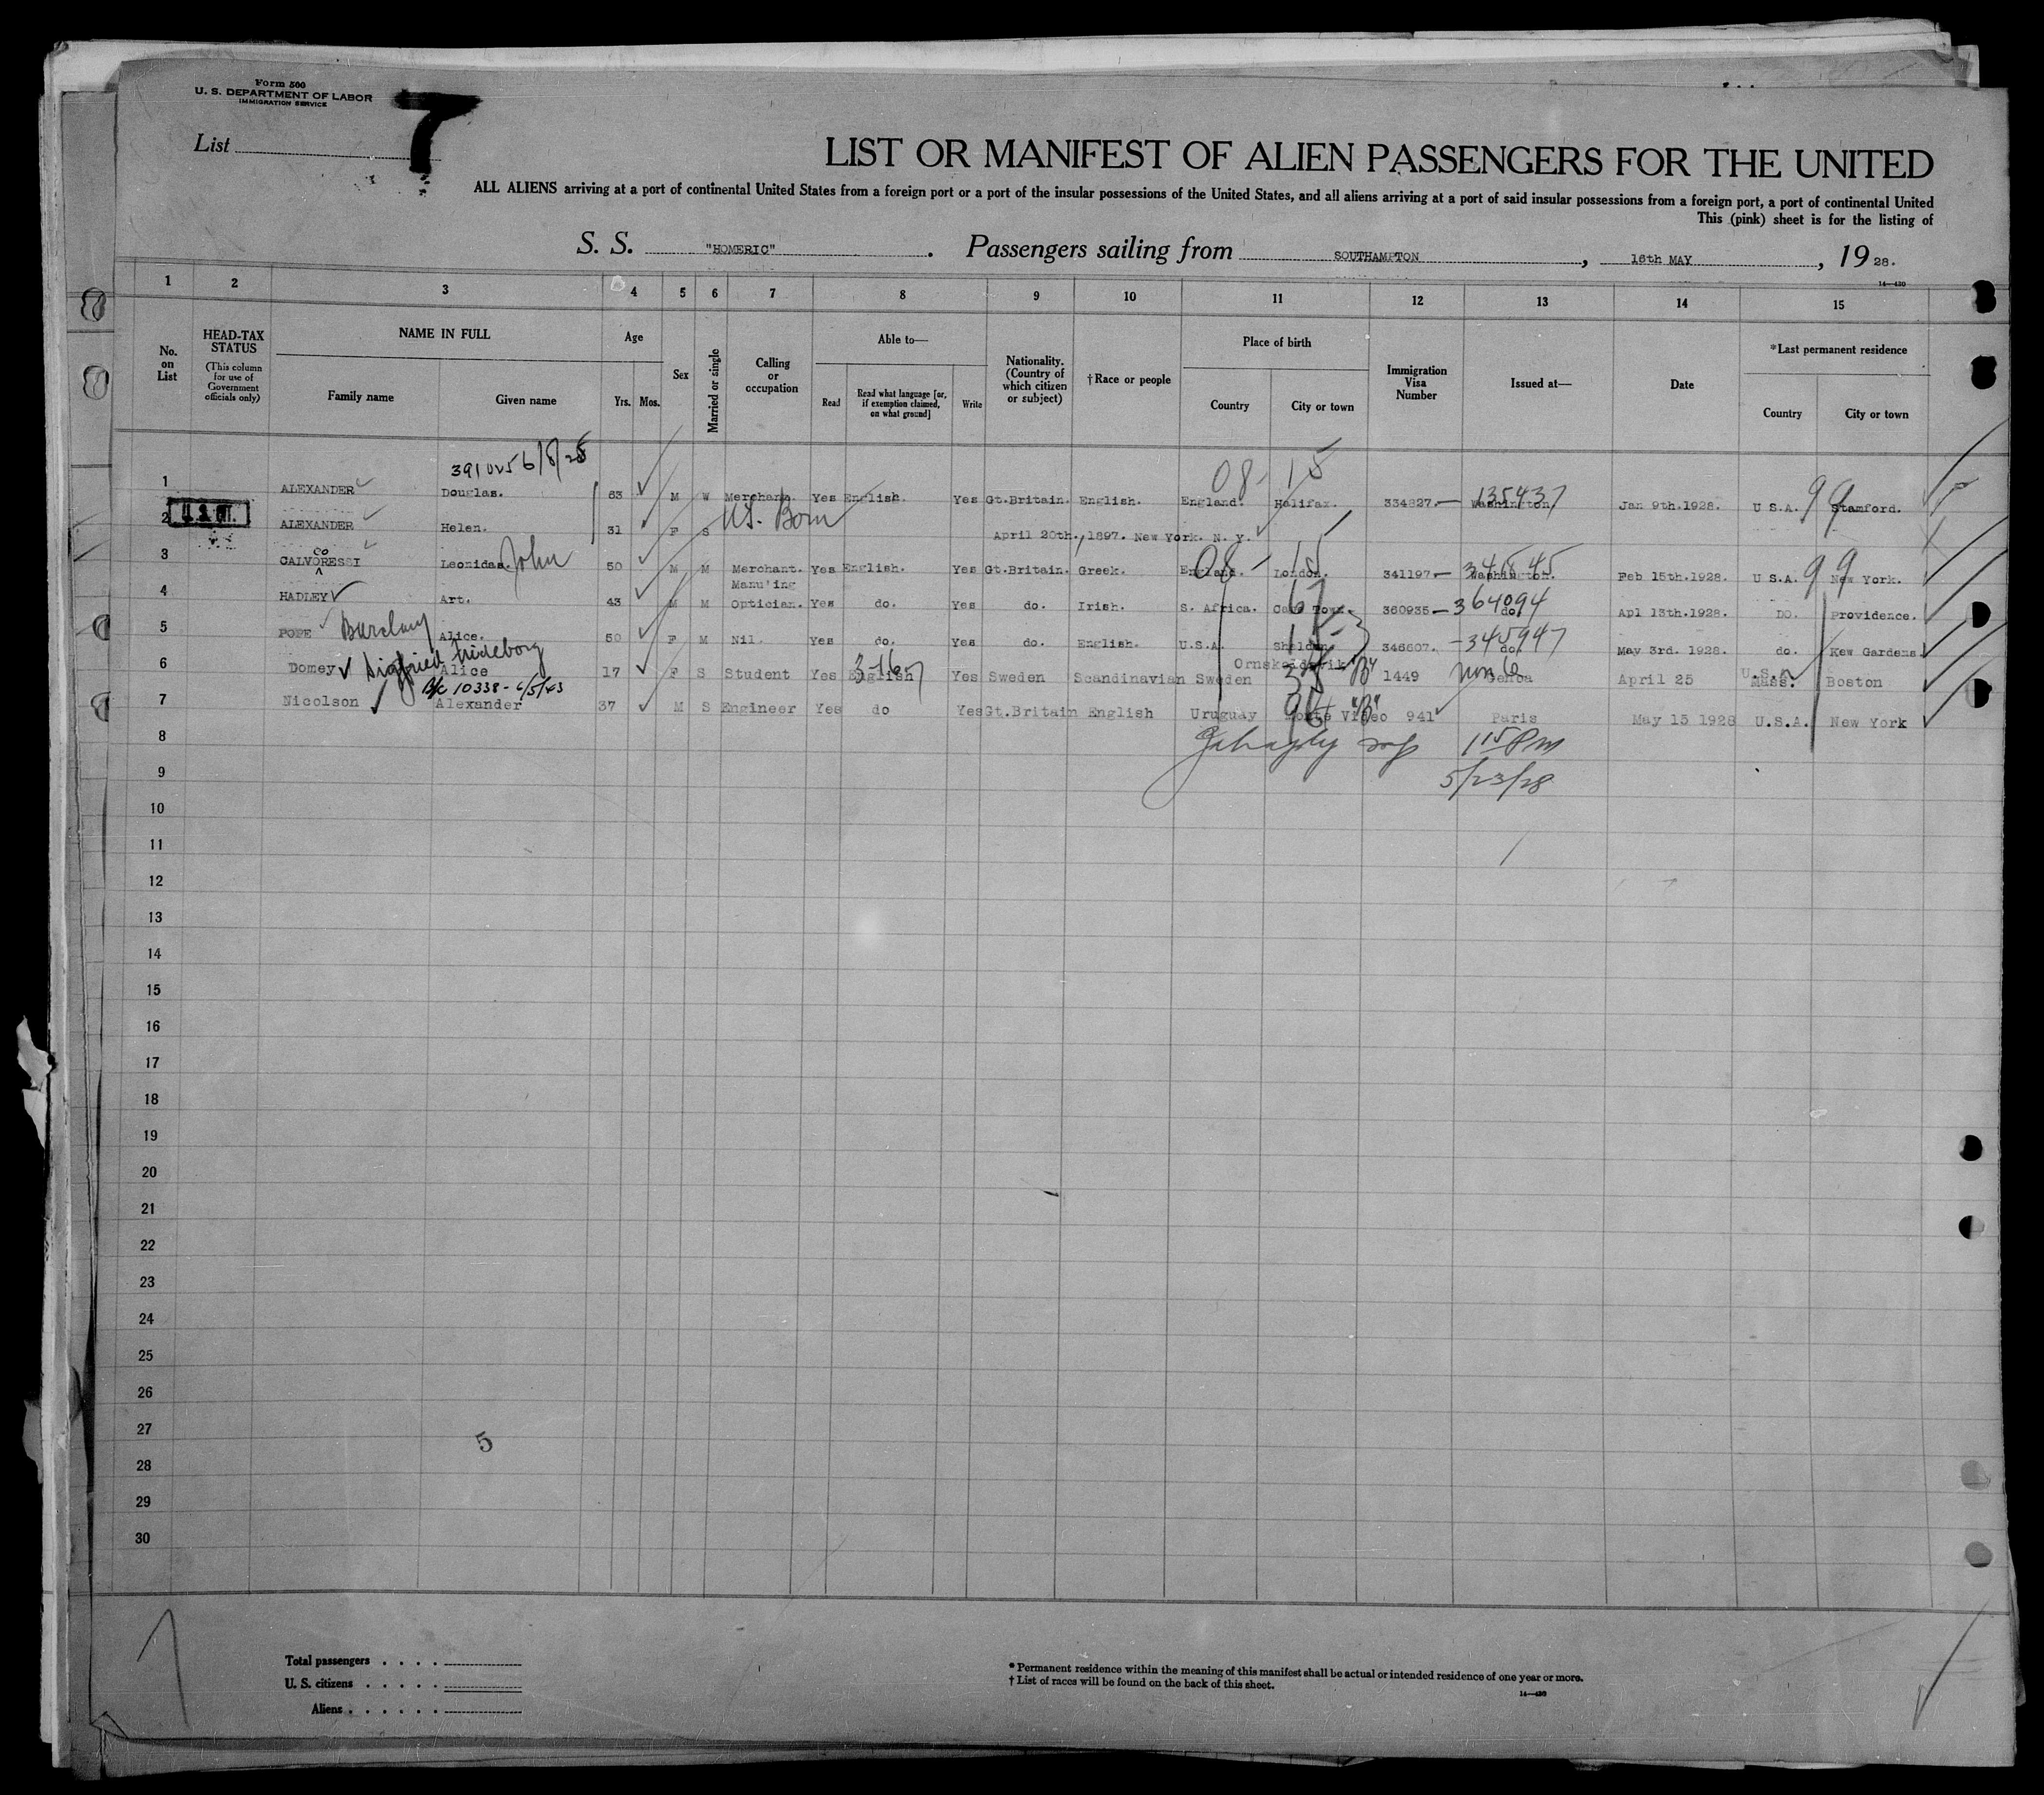 Form 500
U. S. DEPARTMENT OF LABOR
IMMIGRATION SERVICE
List 7
LIST OR MANIFEST OF ALIEN PASSENGERS FOR THE UNITED
ALL ALIENS arriving at a port of continental United States from a foreign port or a port of the insular possessions of the United States, and all aliens arriving at a port of said insular possessions from a foreign port, a port of continental United
This (pink) sheet is for the listing of
S. S. "HOMERIC". Passengers sailing from SOUTHAMPTON, 16th MAY, 1928.
14—430
1 2 3 4 5 6 7 8 9 10 11 12 13 14 15
No. on List
HEAD-TAX STATUS
(This column for use of Government officials only)
NAME IN FULL
Family name
Given name
Age
Yrs. Mos.
Sex
Married or single
Calling or occupation
Able to—
Read
Read what language [or, if exemption claimed, on what ground]
Write
Nationality. (Country of which citizen or subject)
†Race or people
Place of birth
Country
City or town
Immigration Visa Number
Issued at—
Date
*Last permanent residence
Country
City or town
6/8/28 08- 15
1 ALEXANDER Douglas. 63 M W Merchant. Yes English. Yes Gt.Britain. English. England. Halifax. 334827.— Washington 135437 Jan 9th.1928. U S.A. 99 Stamford.
2 ALEXANDER Helen. 31 F S U.S. Born April 20th.,1897. New York. N. Y.
3 CALVORESSI co Leonidas. John 50 M M Merchant. Yes English. Yes Gt.Britain. Greek. England. London. 08- 15 341197.— Washington. Feb 15th.1928. U S.A. 99 New York.
4 HADLEY Art. 43 M M Manu'ing Optician. Yes do. Yes do. Irish. S. Africa. Cape Town. 360935— 364094 do. Apl 13th.1928. DO. Providence.
5 POPE Barclay Alice. 50 F M Nil. Yes do. Yes do. English. U.S.A. Sheldon. 346607. -345947 do. May 3rd. 1928. do. Kew Gardens.
6 Domey Sigfried Frideborg Alice 17 F S Student Yes English Yes Sweden Scandinavian Sweden Ornskoldsvik 1449 Genoa April 25 U.S.A. Mass. Boston
10338- 6/5/43
7 Nicolson Alexander 37 M S Engineer Yes do Yes Gt.Britain English Uruguay Monte Video 941 Paris May 15 1928 U.S.A. New York
8 1 15 Pm
9 5/23/28
10
11
12
13
14
15
16
17
18
19
20
21
22
23
24
25
26
27
5
28
29
30
Total passengers . . . .
U. S. citizens . . . . .
Aliens . . . . . .
* Permanent residence within the meaning of this manifest shall be actual or intended residence of one year or more.
† List of races will be found on the back of this sheet.
14—430